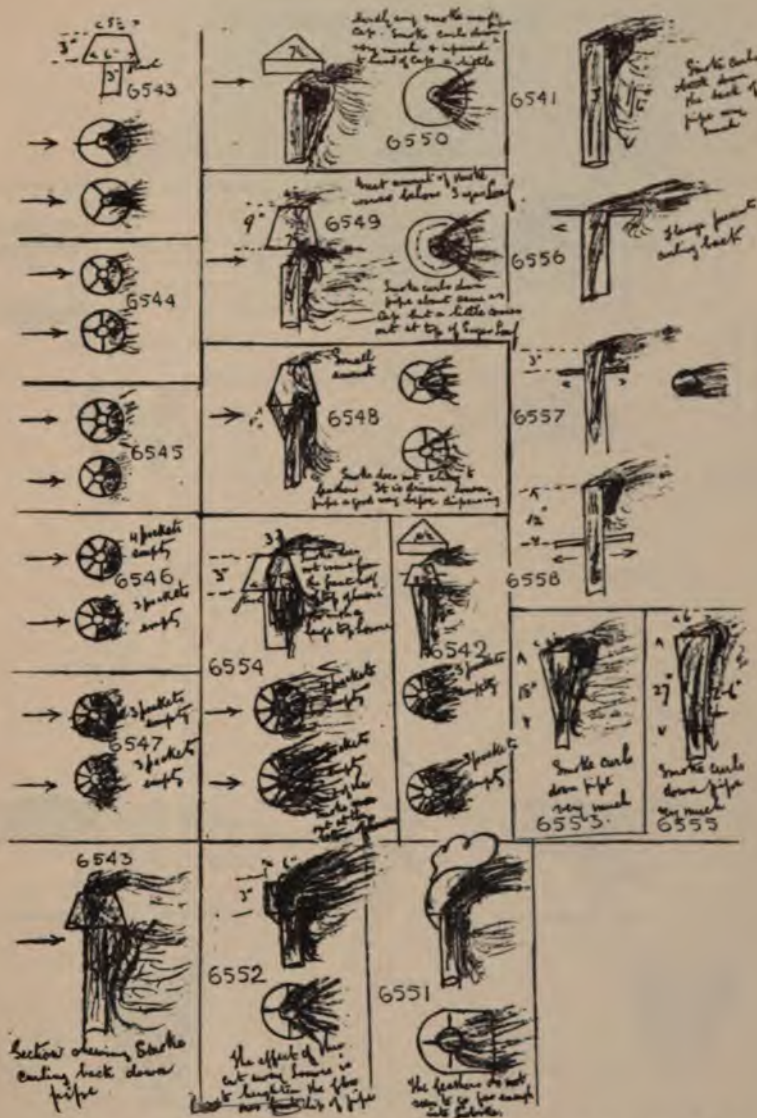 3"
6"
3"
6543
6544
6545
4 pockets
empty
6546
3 pockets
empty
3 pockets
empty
6547
3 pockets
empty
6543
Section showing Smoke
curling back down
pipe
Hardly any smoke
Cap. Smoke curls down
very much & upward
to head of Cap a little
7½
6550
Great amount of smoke
comes below Sugar Loaf
9"
6549
Smoke curls down
pipe about same as
Cap but a little comes
out at top of Sugar Loaf
Small
amount
6548
Smoke does not cling to
feathers It is driven down
pipe a good way before dispersing
3"
3"
not come from
the front half
of top of louvre
large top louvre
6554
pockets
empty
pockets
empty
6542
3 pockets
empty
3 pockets
empty
6"
3"
6552
The effect of this
cut away louvre is
to heighten the flow
over front lip of pipe
6551
The feathers do not
seem to go far enough
into
6541
Smoke curls
back down
the back of
pipe very
much
6556
Flange prevents
curling back
3"
6557
12"
6558
18"
Smoke curls
down pipe
very much
6553.
6
27"
6"
Smoke curls
down pipe
very much
6555